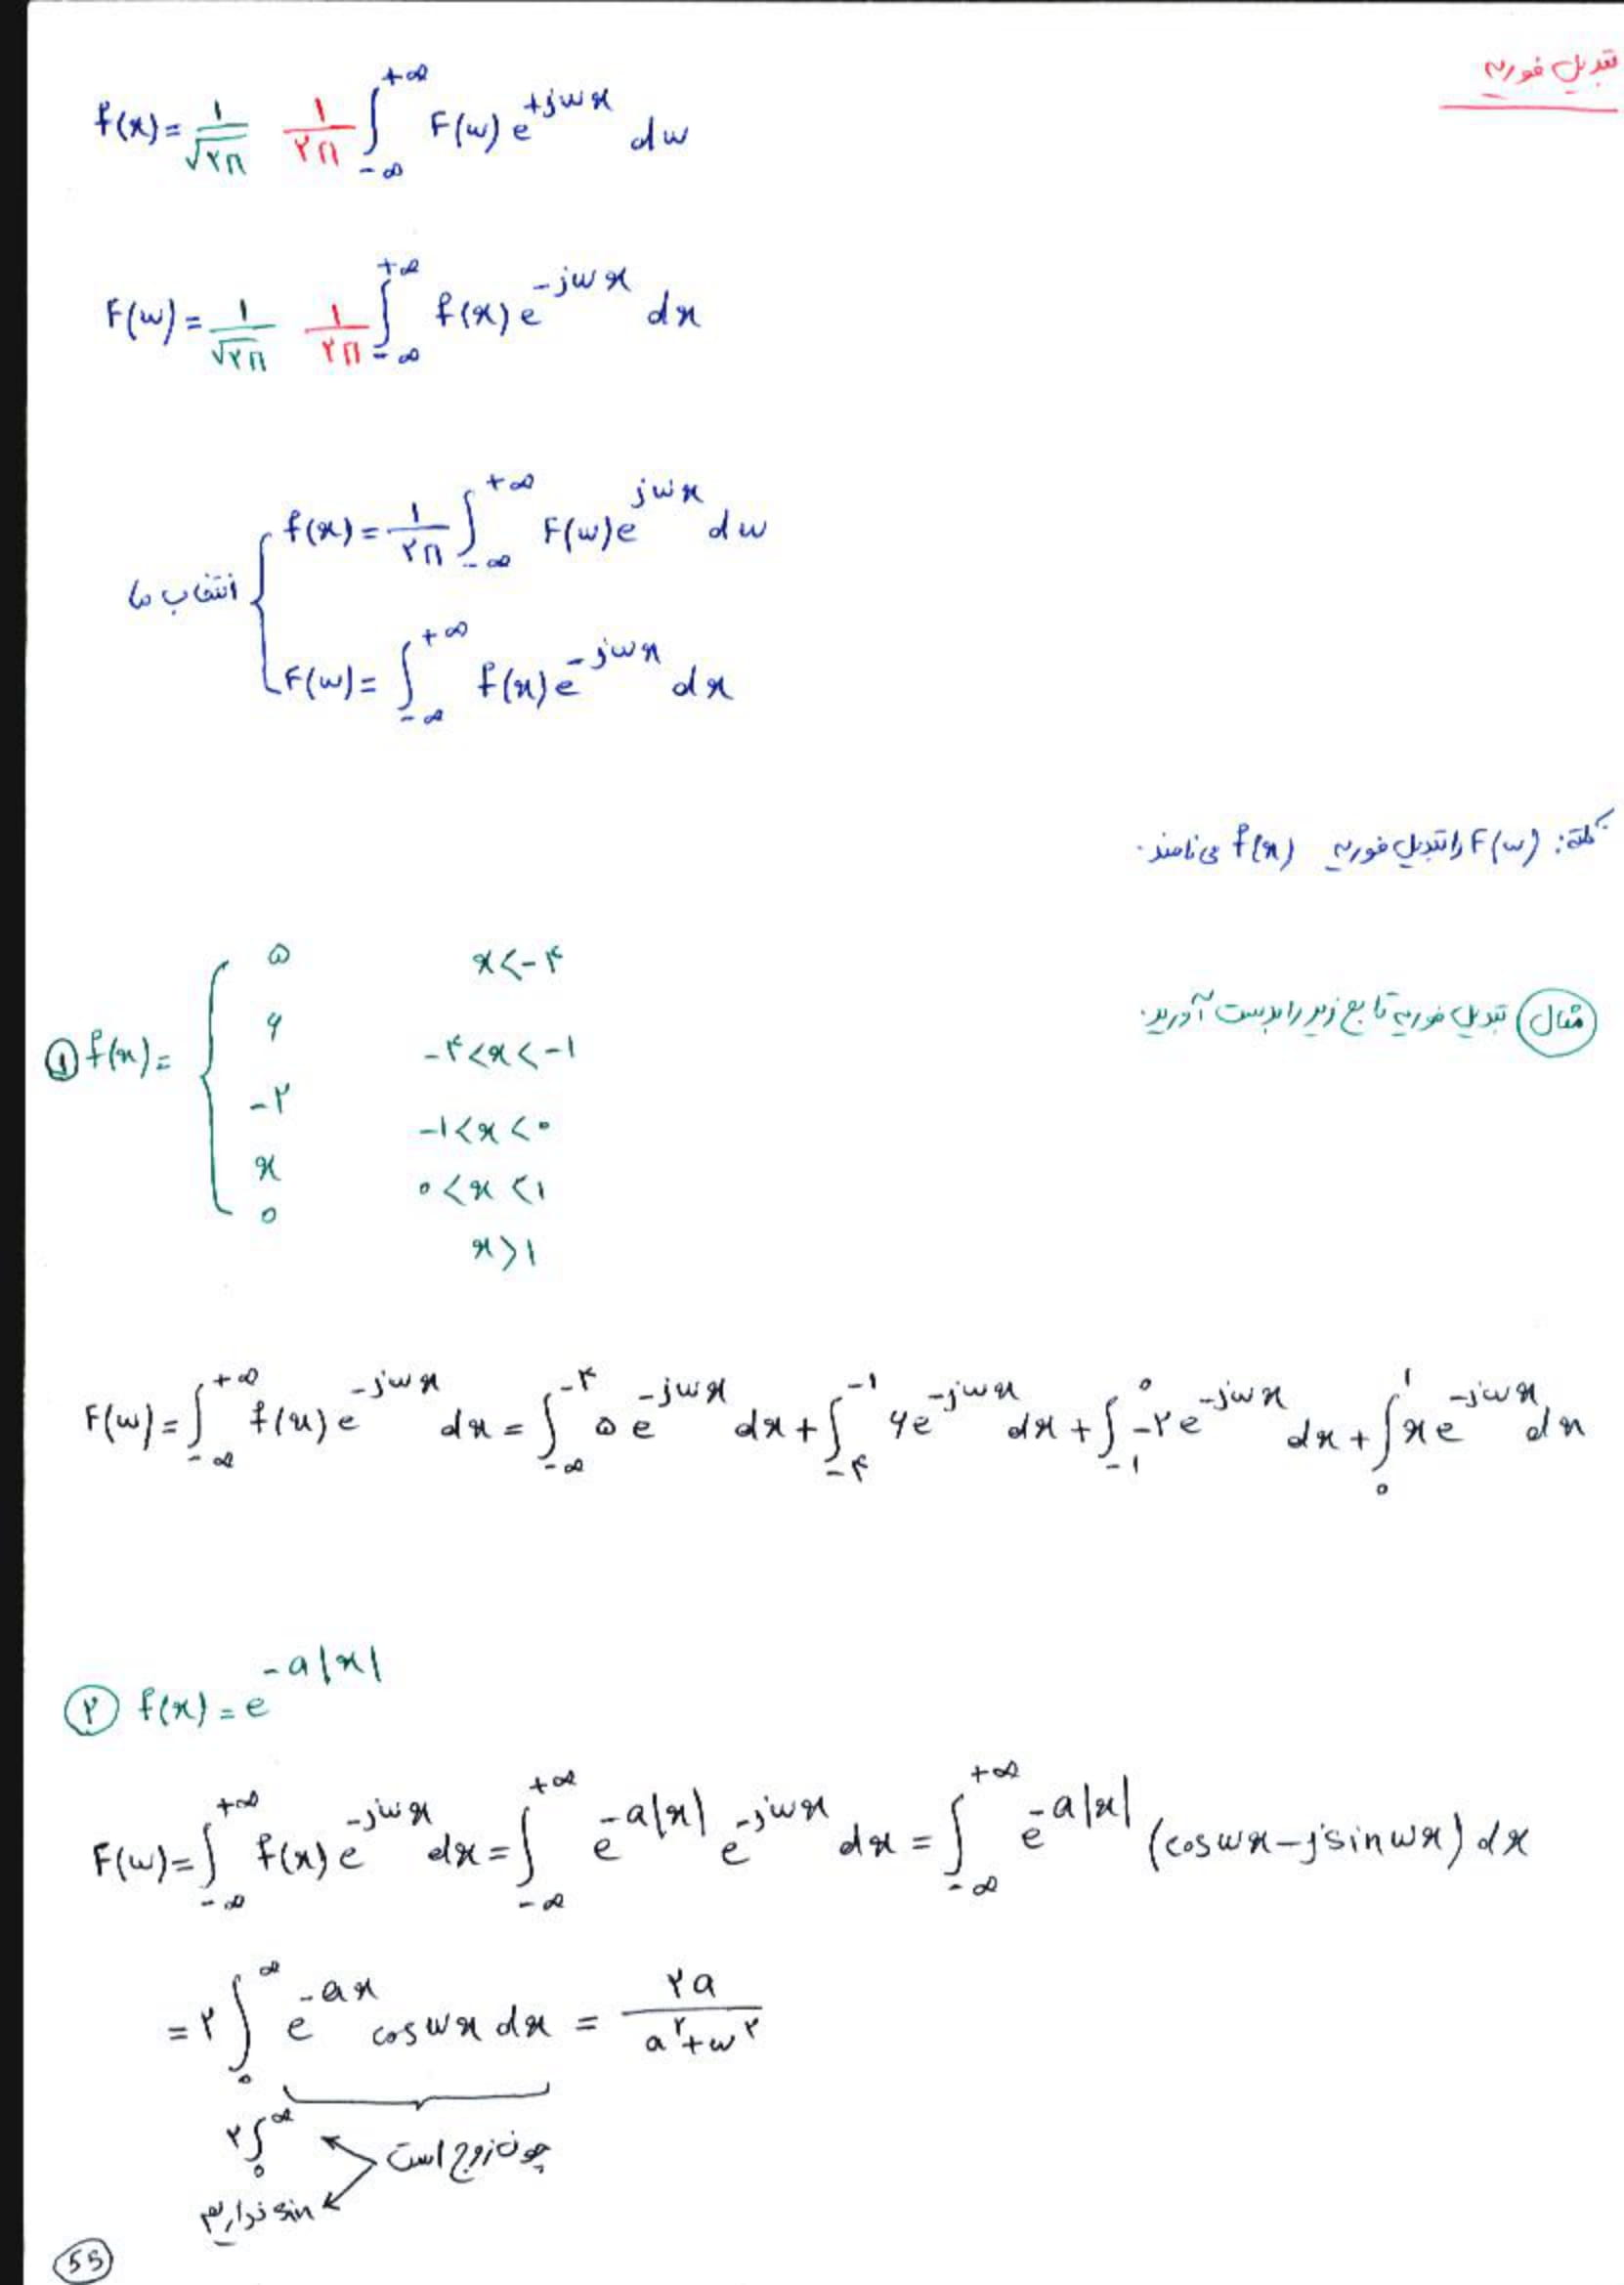 تبدیل فوریه
f(x) = ۱/√۲π ۱/۲π ∫_{-∞}^{+∞} F(ω) e^{+jωx} dω
F(ω) = ۱/√۲π ۱/۲π ∫_{-∞}^{+∞} f(x) e^{-jωx} dx
انتخاب ما
f(x) = ۱/۲π ∫_{-∞}^{+∞} F(ω) e^{jωx} dω
F(ω) = ∫_{-∞}^{+∞} f(x) e^{-jωx} dx
نکته: F(ω) را تبدیل فوریه f(x) می نامند.
مثال تبدیل فوریه تابع زیر را بدست آورید.
① f(x) = {
۵ x < -۴
۶ -۴ < x < -۱
-۲ -۱ < x < ۰
x ۰ < x < ۱
۰ x > ۱
F(ω) = ∫_{-∞}^{+∞} f(x) e^{-jωx} dx = ∫_{-∞}^{-۴} ۵ e^{-jωx} dx + ∫_{-۴}^{-۱} ۶ e^{-jωx} dx + ∫_{-۱}^{۰} -۲ e^{-jωx} dx + ∫_{۰}^{۱} x e^{-jωx} dx
② f(x) = e^{-a|x|}
F(ω) = ∫_{-∞}^{+∞} f(x) e^{-jωx} dx = ∫_{-∞}^{+∞} e^{-a|x|} e^{-jωx} dx = ∫_{-∞}^{+∞} e^{-a|x|} (cosωx - jsinωx) dx
= ۲ ∫_{۰}^{∞} e^{-ax} cosωx dx = ۲a/(a^۲ + ω^۲)
۲∫_{۰}^{∞} چون زوج است
sin نداریم
55